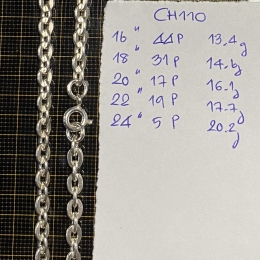 CH110
16" 44P 13.4g
18" 31P 14.6g
20" 17P 16.1g
22" 19P 17.7g
24" 5P 20.2g